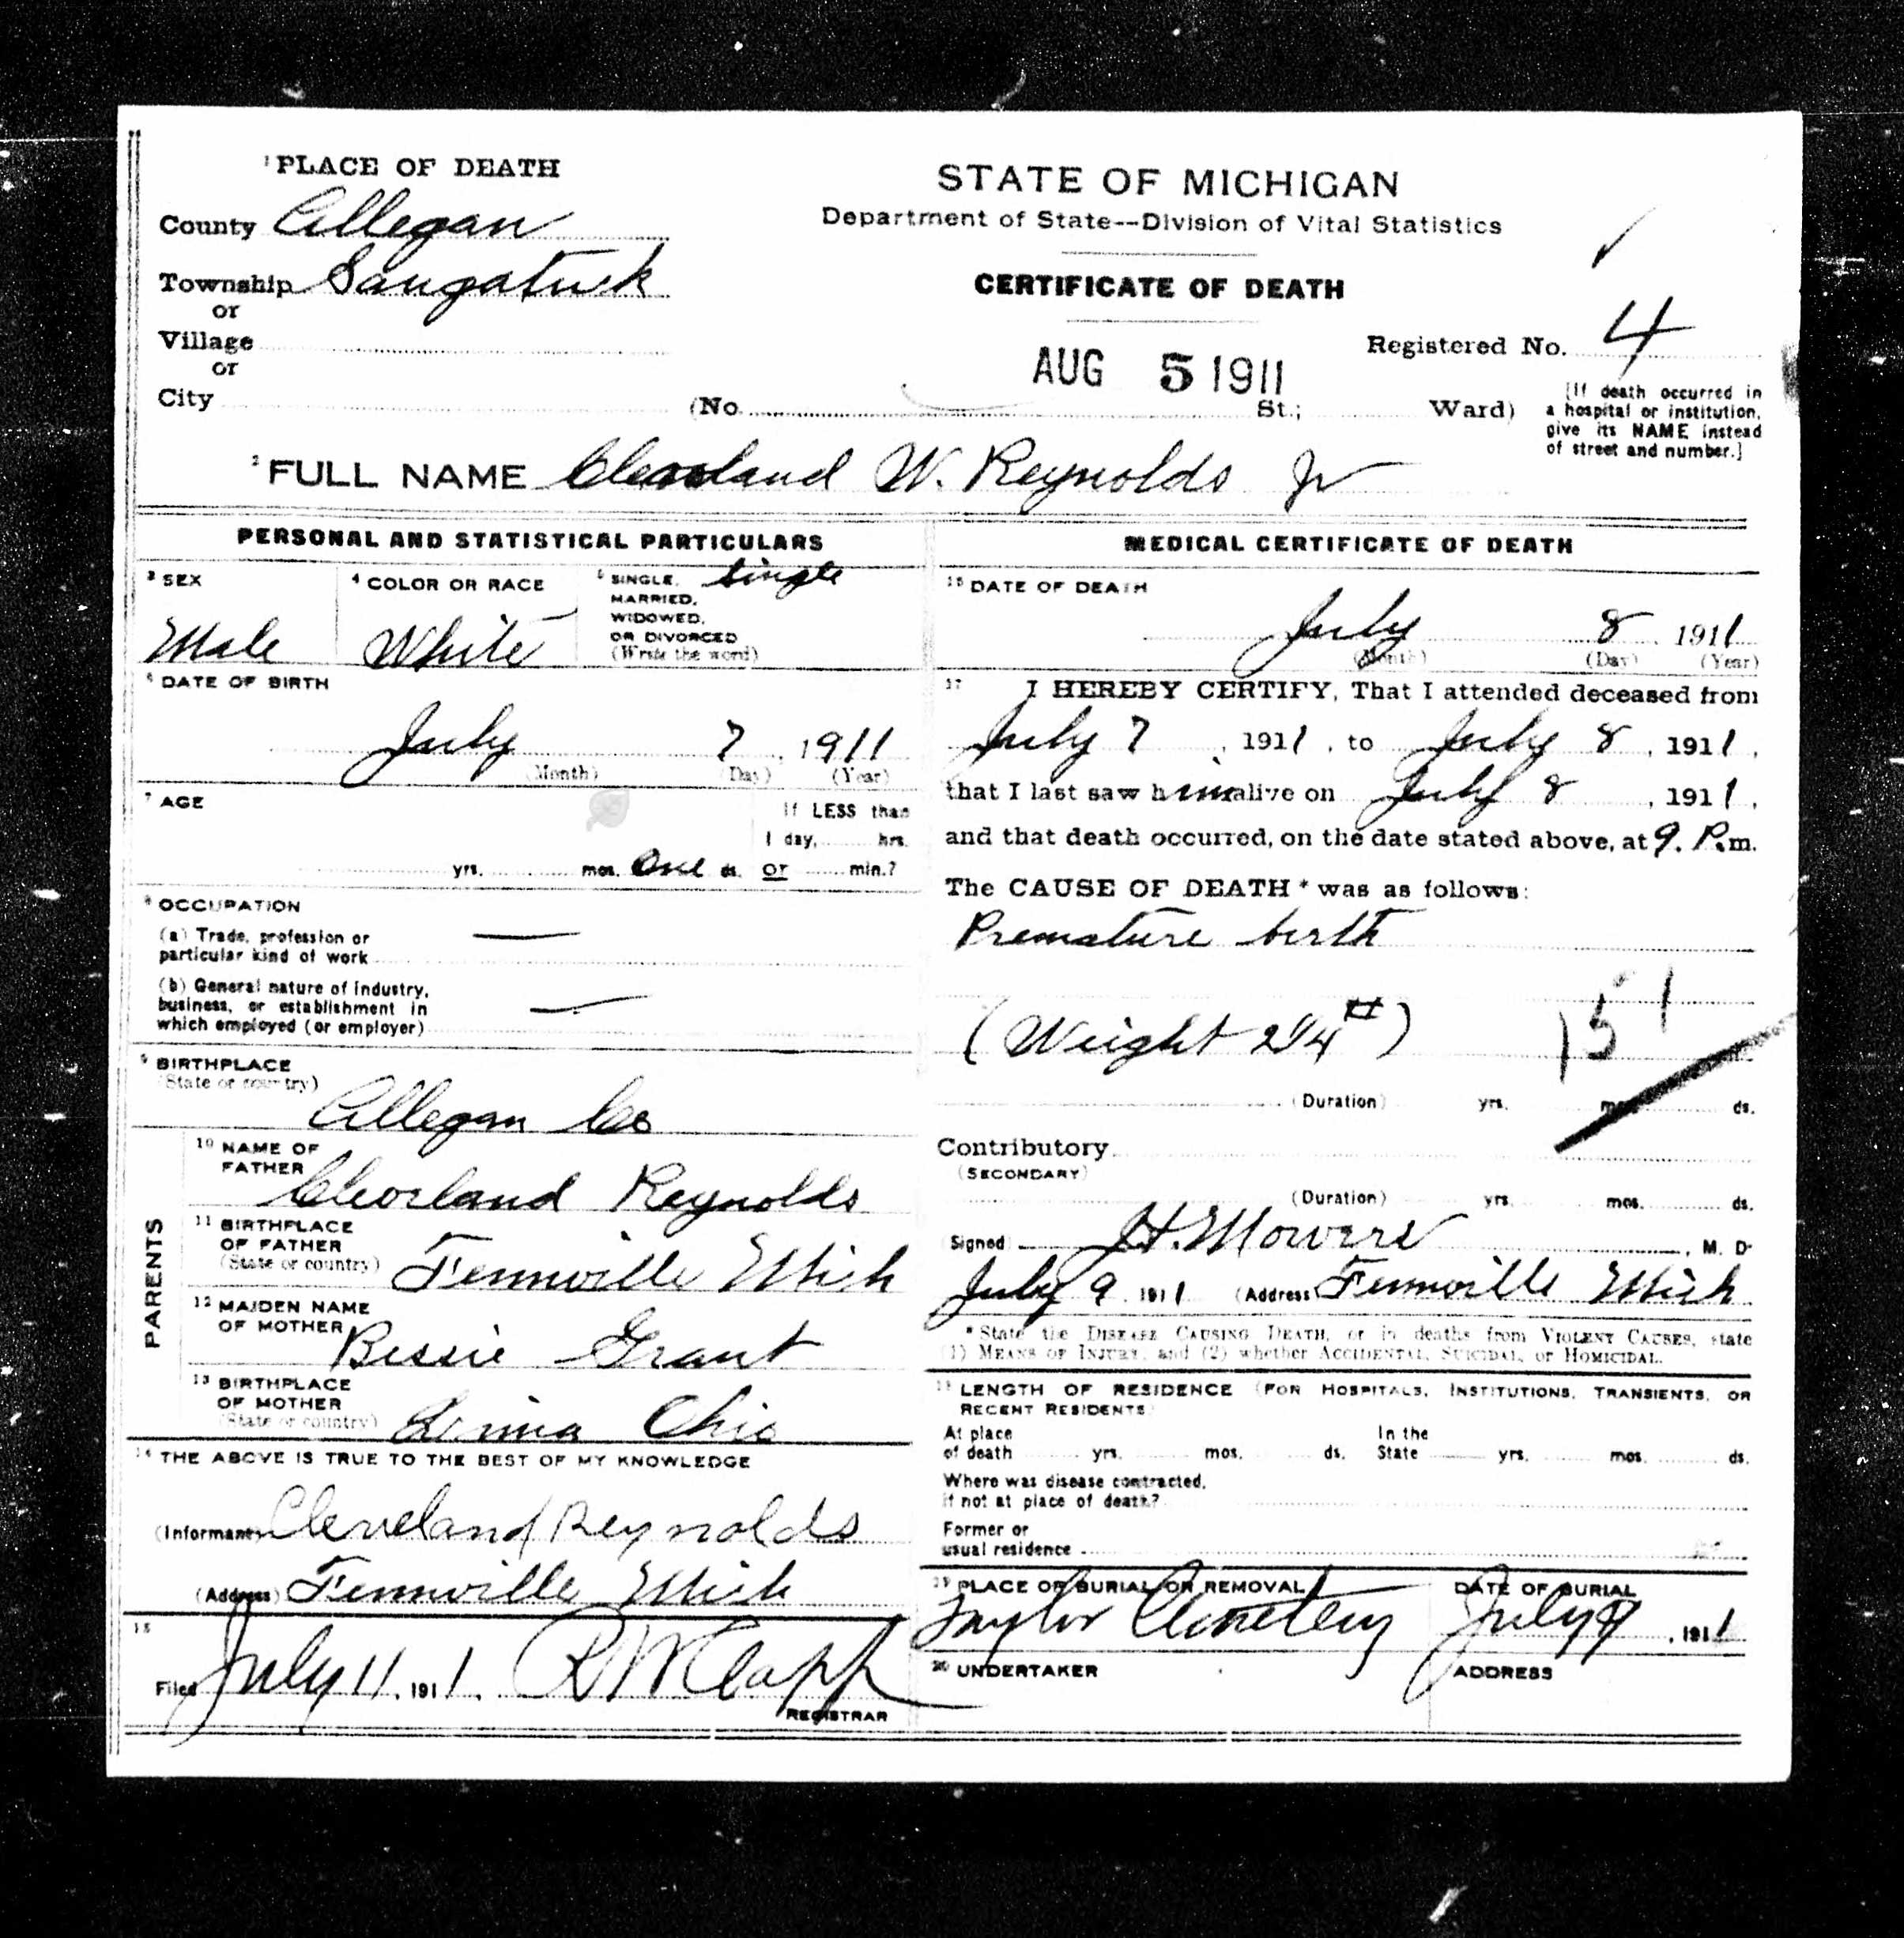 1 PLACE OF DEATH
County Allegan
Township Saugatuck
or
Village
or
City
STATE OF MICHIGAN
Department of State--Division of Vital Statistics
CERTIFICATE OF DEATH
AUG 5 1911
Registered No. 4
(No. St.; Ward)
[If death occurred in
a hospital or institution,
give its NAME instead
of street and number.]
2 FULL NAME Cleveland W. Reynolds Jr
PERSONAL AND STATISTICAL PARTICULARS
3 SEX
Male
4 COLOR OR RACE
White
5 SINGLE, Single
MARRIED,
WIDOWED,
OR DIVORCED
(Write the word)
6 DATE OF BIRTH
July 7, 1911
(Month) (Day) (Year)
7 AGE
If LESS than
1 day, hrs.
yrs. mos. One ds. or min.?
8 OCCUPATION
(a) Trade, profession or
particular kind of work —
(b) General nature of industry,
business, or establishment in
which employed (or employer) —
9 BIRTHPLACE
(State or country)
Allegan Co
PARENTS
10 NAME OF
FATHER
Cleorland Reynolds
11 BIRTHPLACE
OF FATHER
(State or country) Fennville Mich
12 MAIDEN NAME
OF MOTHER
Bessie Grant
13 BIRTHPLACE
OF MOTHER
(State or country) Lima Ohio
14 THE ABOVE IS TRUE TO THE BEST OF MY KNOWLEDGE
(Informant) Cleveland Reynolds
(Address) Fennville Mich
15
Filed July 11, 1911. R W Clapp
REGISTRAR
MEDICAL CERTIFICATE OF DEATH
16 DATE OF DEATH
July 8, 1911
(Month) (Day) (Year)
17 I HEREBY CERTIFY, That I attended deceased from
July 7, 1911, to July 8, 1911,
that I last saw him alive on July 8, 1911,
and that death occurred, on the date stated above, at 9. P.m.
The CAUSE OF DEATH* was as follows:
Premature birth
(Weight 2 1/4 #)
151
(Duration) yrs. mos. ds.
Contributory
(SECONDARY)
(Duration) yrs. mos. ds.
Signed J.H. Mowers, M. D.
July 9, 1911 (Address) Fennville Mich
*State the DISEASE CAUSING DEATH, or in deaths from VIOLENT CAUSES, state
(1) MEANS OF INJURY, and (2) whether ACCIDENTAL, SUICIDAL, or HOMICIDAL.
18 LENGTH OF RESIDENCE (FOR HOSPITALS, INSTITUTIONS, TRANSIENTS, OR
RECENT RESIDENTS)
At place In the
of death yrs. mos. ds. State yrs. mos. ds.
Where was disease contracted,
if not at place of death?
Former or
usual residence
19 PLACE OF BURIAL OR REMOVAL
Taylor Cemetery
DATE OF BURIAL
July 9, 1911
20 UNDERTAKER
ADDRESS